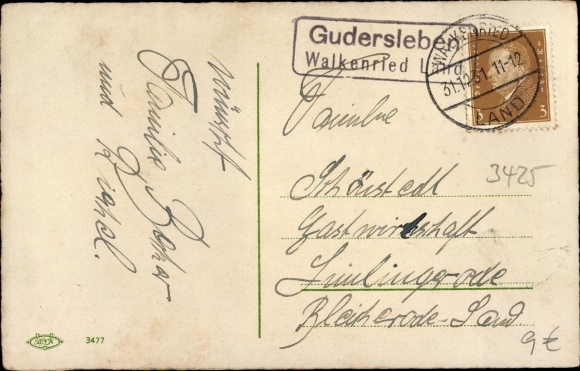 wünscht
Familie
und
3477
Gudersleben
Walkenried Land
WALKENRIED
31.12.31.11-12
LAND
3 3
Familie
Schönstedt
Gastwirtschaft
Limlingerode
Bleicherode-Land
3425
9 €